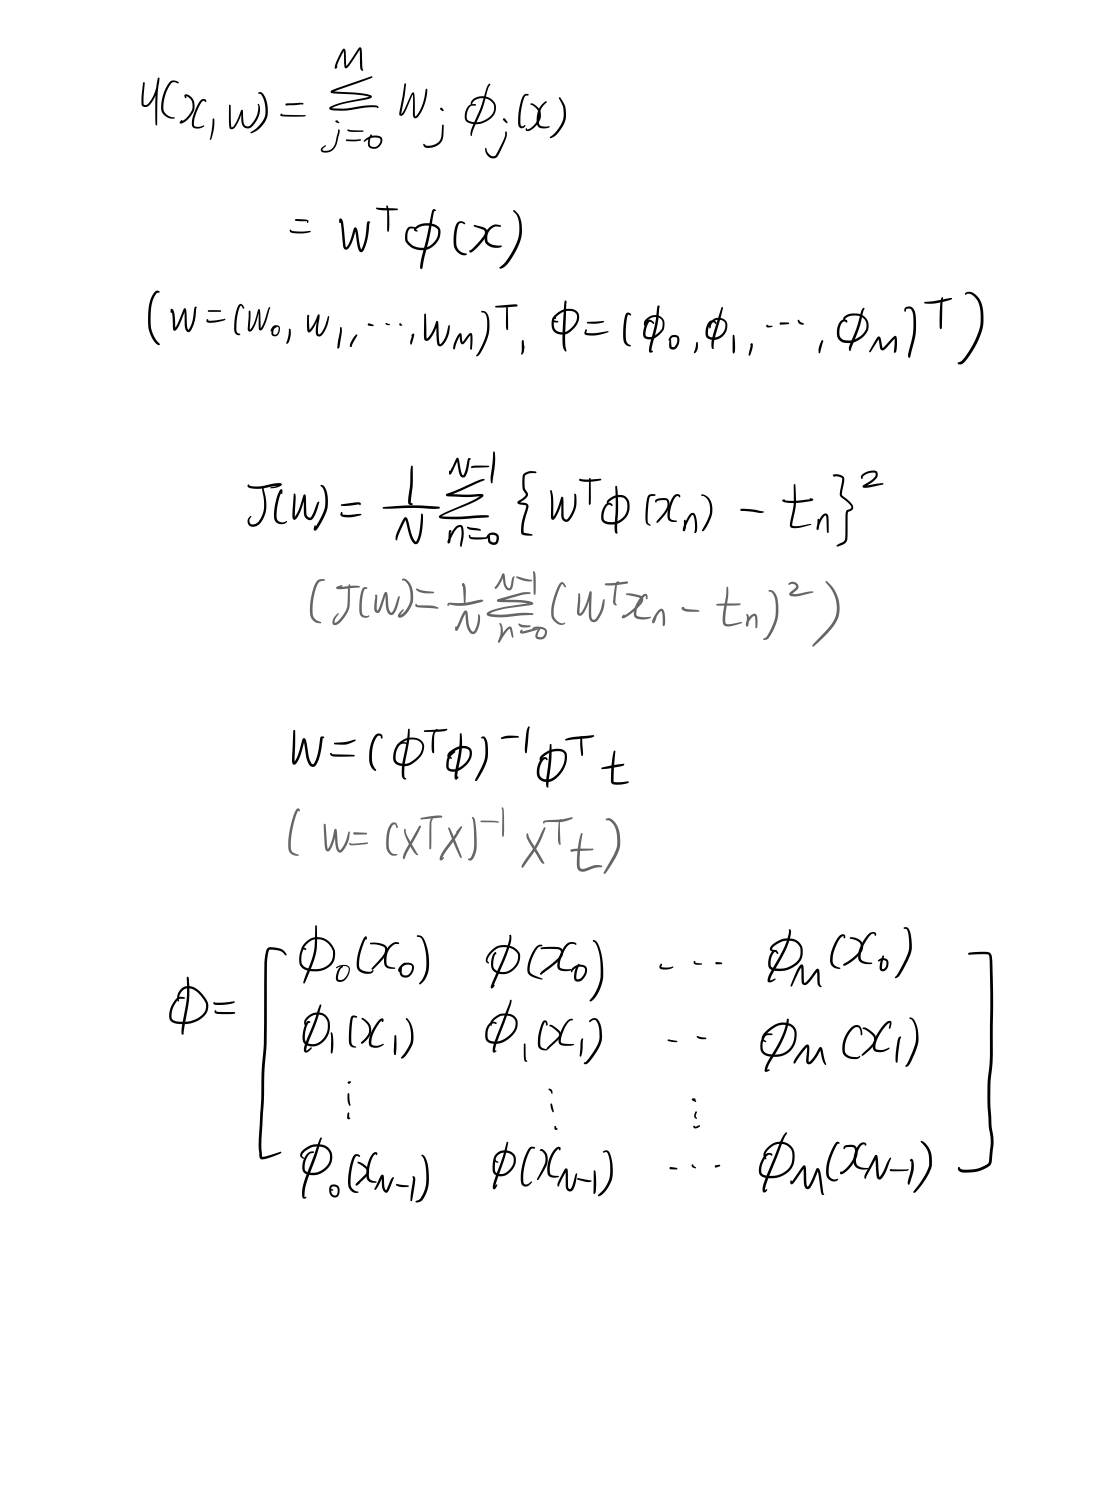 y(x, w) = \sum_{j=0}^{M} w_j \phi_j(x)
= w^T \phi(x)
(w = (w_0, w_1, ⋯, w_M)^T, \phi = (\phi_0, \phi_1, ⋯, \phi_M)^T)
J(w) = \frac{1}{N} \sum_{n=0}^{N-1} \{ w^T \phi(x_n) - t_n \}^2
(J(w) = \frac{1}{N} \sum_{n=0}^{N-1} (w^T x_n - t_n)^2)
w = (\phi^T \phi)^{-1} \phi^T t
(w = (X^T X)^{-1} X^T t)
\phi = [ \phi_0(x_0) \phi(x_0) ⋯ \phi_M(x_0)
\phi_1(x_1) \phi_1(x_1) ⋯ \phi_M(x_1)
⋮ ⋮ ⋮
\phi_0(x_{N-1}) \phi(x_{N-1}) ⋯ \phi_M(x_{N-1}) ]